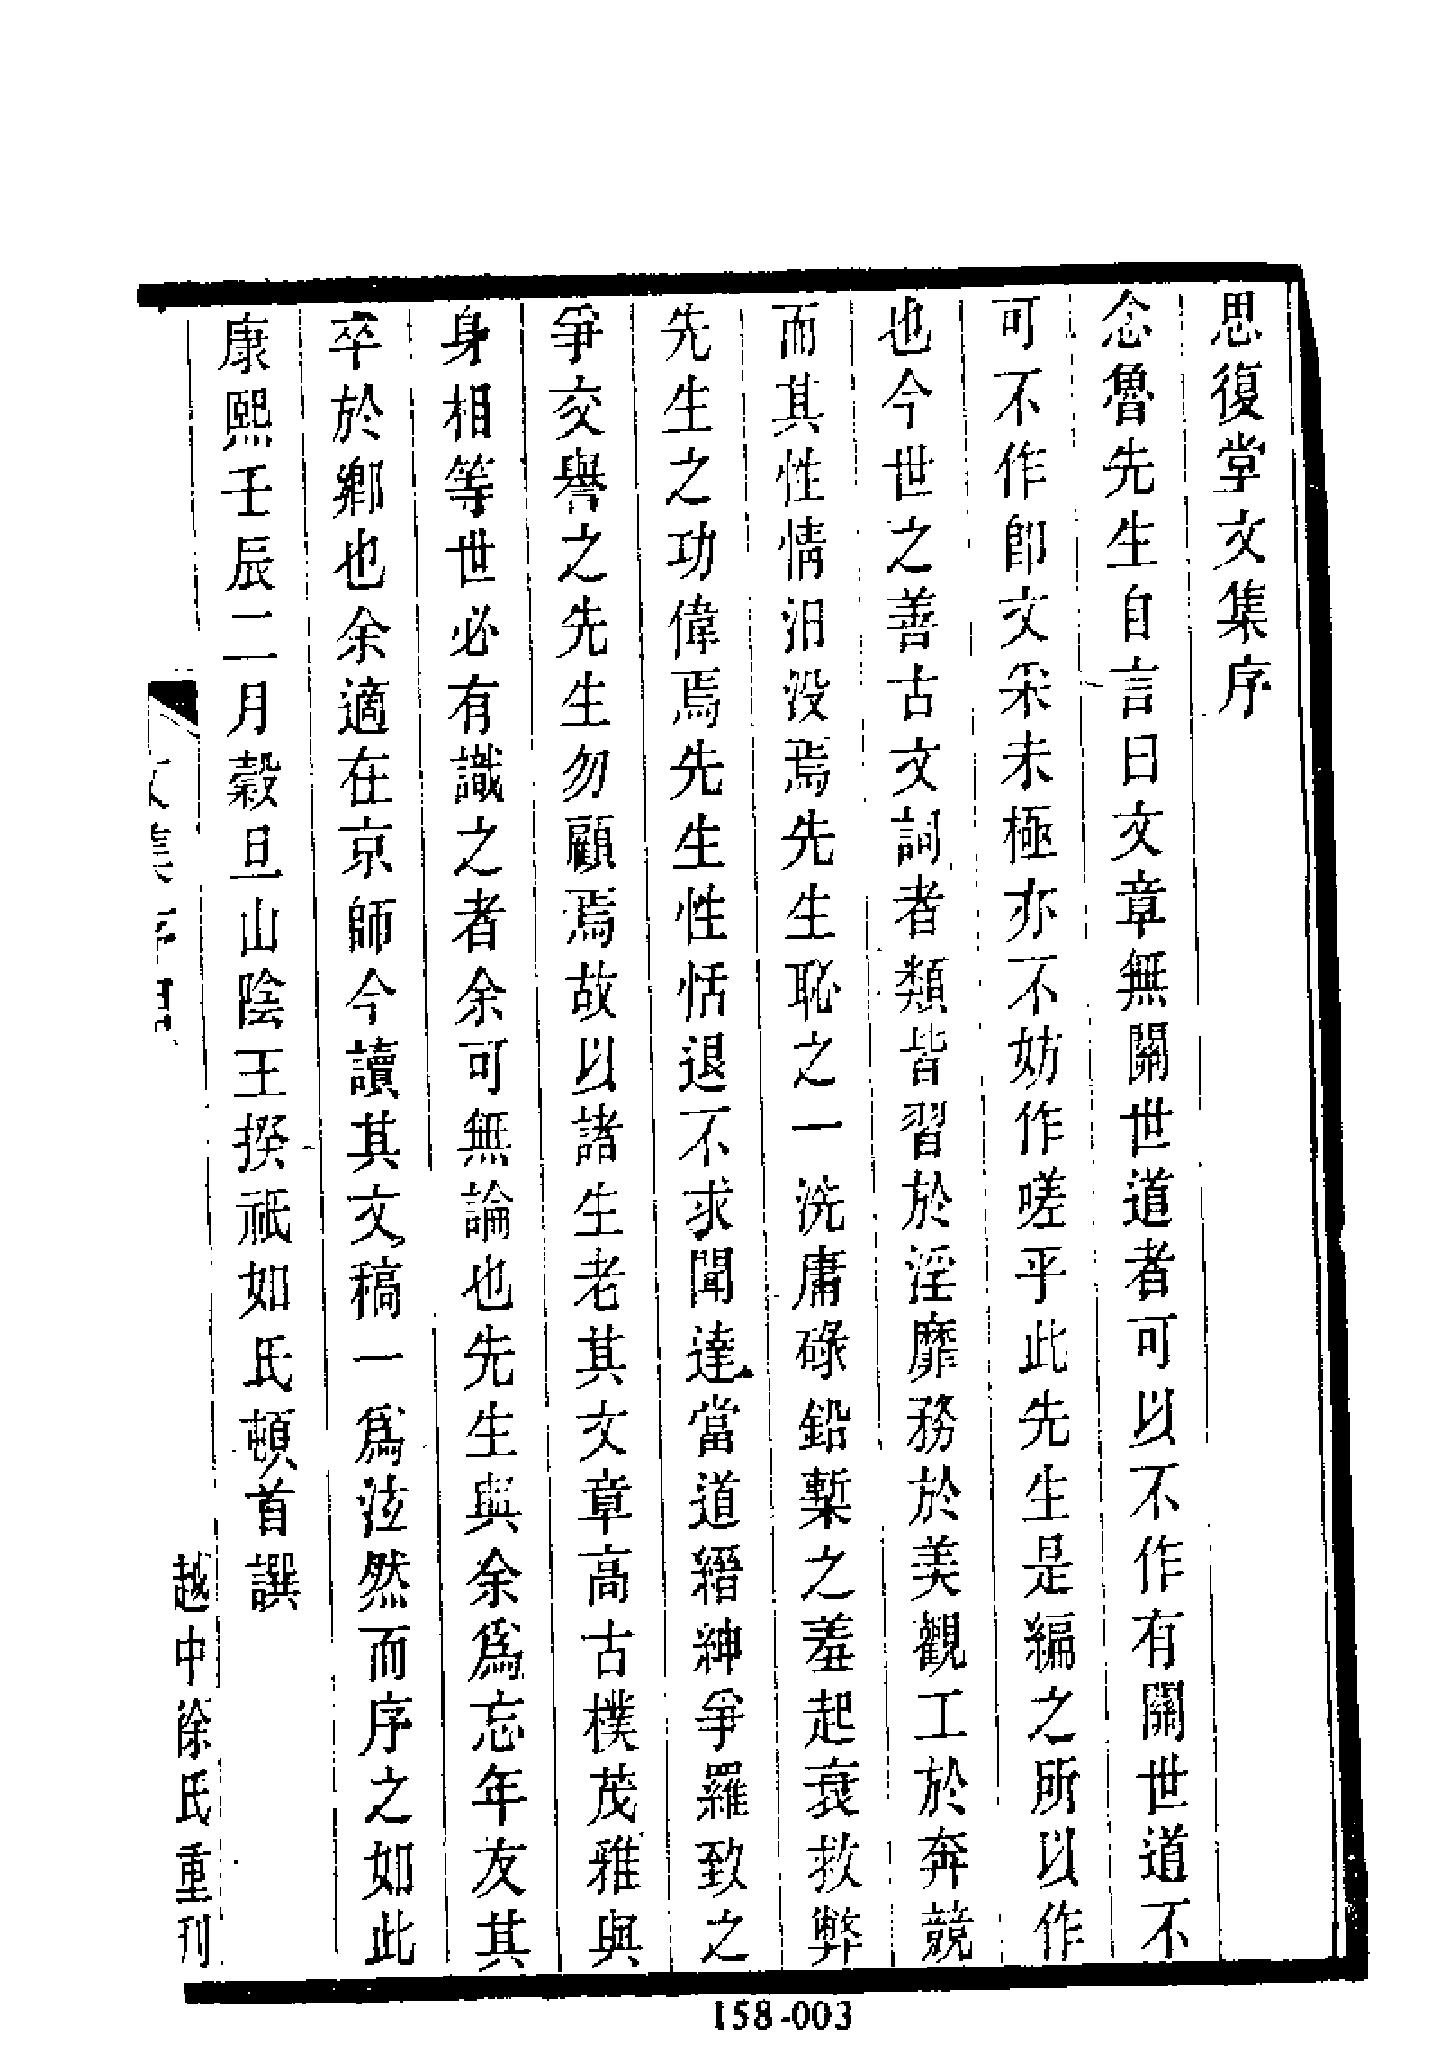 思復堂文集序
念魯先生自言曰文章無關世道者可以不作有關世道不
可不作卽文采未極亦不妨作嗟乎此先生是編之所以作
也今世之善古文詞者類皆習於淫靡務於美觀工於奔競
而其性情汨没焉先生恥之一洗庸碌鉛槧之羞起衰救弊
先生之功偉焉先生性恬退不求聞達當道縉紳爭羅致之
爭交譽之先生勿顧焉故以諸生老其文章高古樸茂雅與
身相等世必有識之者余可無論也先生與余爲忘年友其
卒於鄉也余適在京師今讀其文稿一爲泫然而序之如此
康熙壬辰二月穀旦山陰王揆祇如氏頓首譔
文集序
越中徐氏重刊
158-003